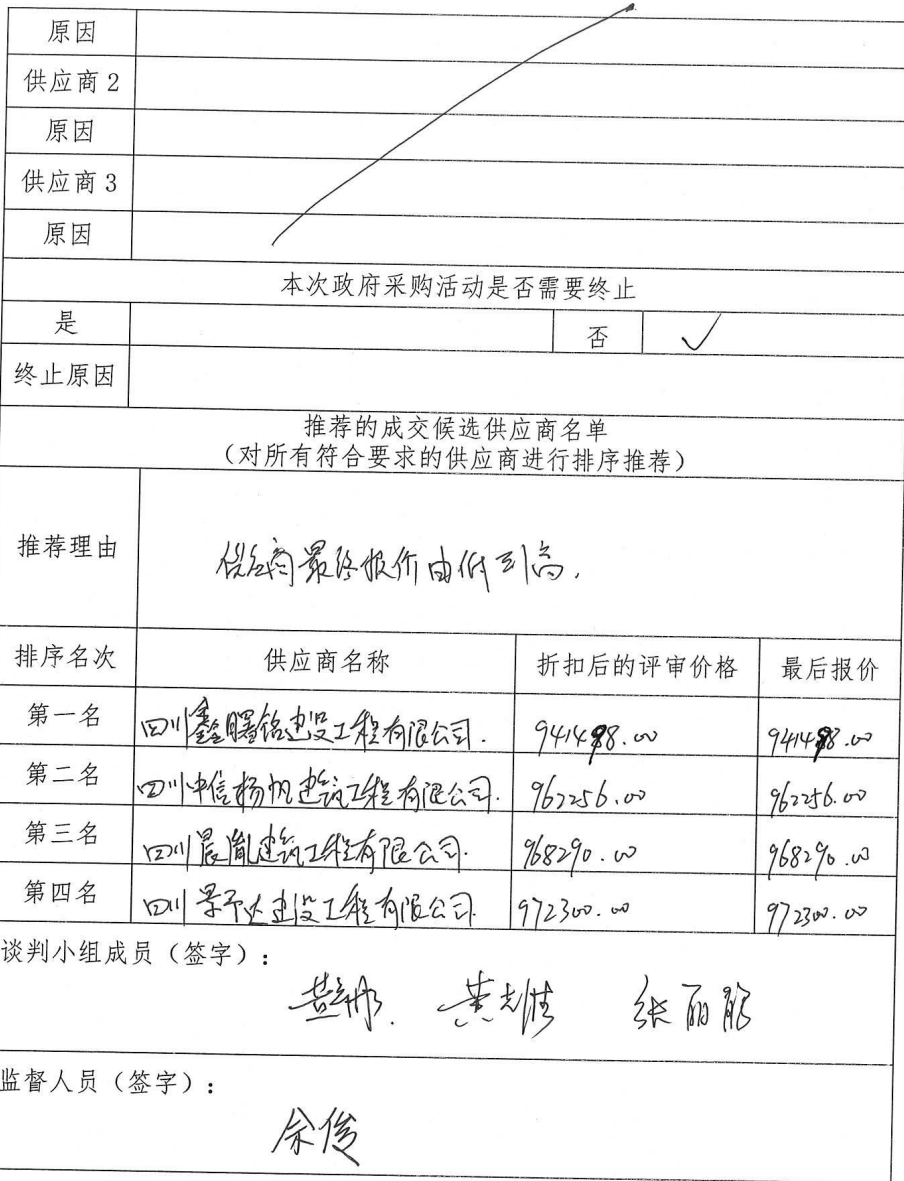 原因
供应商 2
原因
供应商 3
原因
本次政府采购活动是否需要终止
是 否 ✓
终止原因
推荐的成交候选供应商名单
（对所有符合要求的供应商进行排序推荐）
推荐理由 供应商最终报价由低到高.
排序名次 供应商名称 折扣后的评审价格 最后报价
第一名 四川鑫曙铭建设工程有限公司. 941498.00 941498.00
第二名 四川中信杨帆建筑工程有限公司. 962256.00 962256.00
第三名 四川晨胤建筑工程有限公司. 968290.00 968290.00
第四名 四川景予达建设工程有限公司. 972300.00 972300.00
谈判小组成员（签字）：
张丽
监督人员（签字）：
余俊